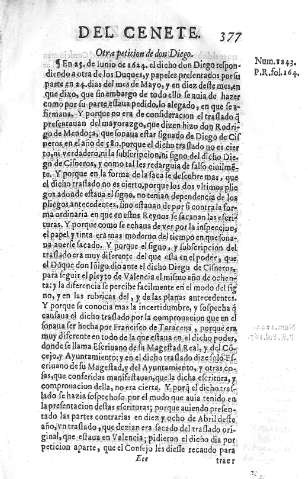 DEL CENETE. 377
Otra peticion de don Diego.
¶ En 25. de Iunio de 1624. el dicho don Diego respon-
diendo a otra de los Duques, y papeles presentados por su
parte en 24. dias del mes de Mayo, y en diez deste mes, en
que dixo, que sin embargo de todo ello se auia de hazer
como por su parte estaua pedido, lo alegado, en que se a-
firmaua. Y porque no era de consideracion el traslado q̃
presentauan del mayorazgo, que dizen hizo don Rodri-
go de Mendoça, que sonaua estar signado de Diego de Cis-
neros, en el año de 580. porque el dicho traslado no es cier-
to, ni verdadero, ni la subscripcion, ni signo del dicho Die-
go de Cisneros, y como tal les redarguia de falso ciuilmẽ-
te. Y porque en la forma de la saca se descubre mas, que
el dicho traslado no es cierto, porque los dos vltimos plie-
gos adonde estaua el signo, no tenian dependencia de los
pliegos antecedentes, sino estauan de por si contra la for-
ma ordinaria en que en estos Reynos se sacauan las escri-
turas. Y porque como se echaua de ver por la inspeccion,
el papel y tinta era mas moderno del tiempo en que sona-
ua auerse sacado. Y porque el signo, y subscripcion del
traslado era muy diferente del que està en el poder, que
el Duque don Iñigo dio ante el dicho Diego de Cisneros,
para seguir el pleyto de Valencia el mismo año de ochen-
ta; y la diferencia se percibe facilmente en el modo del sig-
no, y en las rubricas del, y de las planas antecedentes.
Y porque se conocia mas la incertidumbre, y sospecha q̃
causaua el dicho traslado por la comprouacion que en el
sonaua ser hecha por Francisco de Taracena, porque era
muy diferente en todo de la que estaua en el dicho poder,
donde se llama Escriuano de su Magestad Real, y del Cõ-
cejo, y Ayuntamiento; y en el dicho traslado dize solo Es-
criuano de su Magestad, y del Ayuntamiento, y otras co-
sas, que conferidas manifestauan, que la dicha escritura, y
comprouacion della, no era cierta. Y porq̃ el dicho tras-
lado se hazia sospechoso por el modo que auia tenido en
la presentacion destas escrituras; porque auiendo presen-
tado las partes contrarias en diez y ocho de Abril deste
año, vn traslado, que dezian era sacado del traslado origi-
nal, que estaua en Valencia; pidieron el dicho dia por
peticion aparte, que el Consejo les diesse recaudo para
Eee traer
Num. 1243.
P.R. fol. 164.